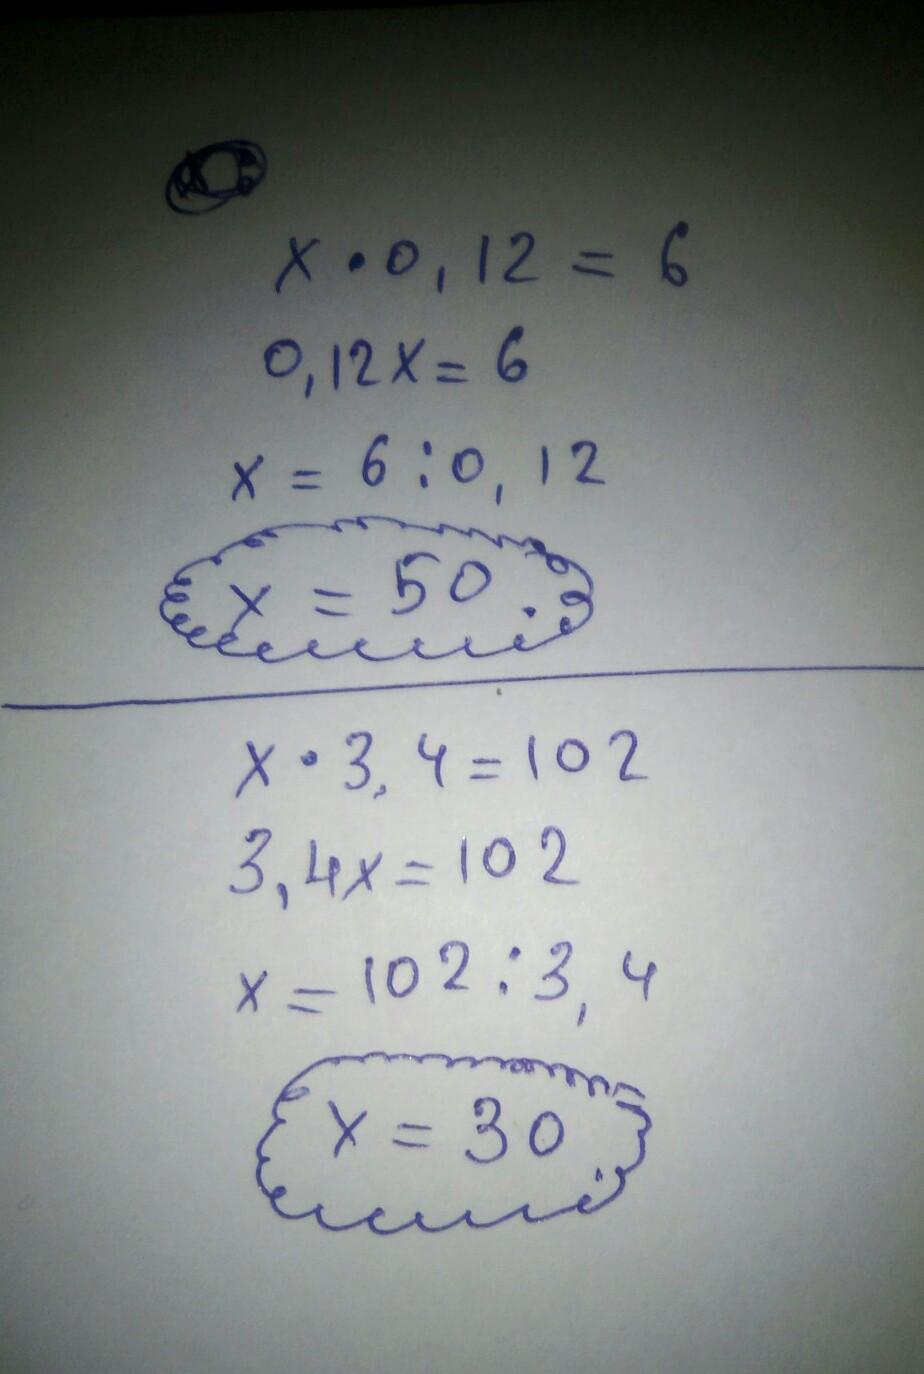 x · 0,12 = 6
0,12x = 6
x = 6 : 0,12
x = 50.
x · 3,4 = 102
3,4x = 102
x = 102 : 3,4
x = 30.